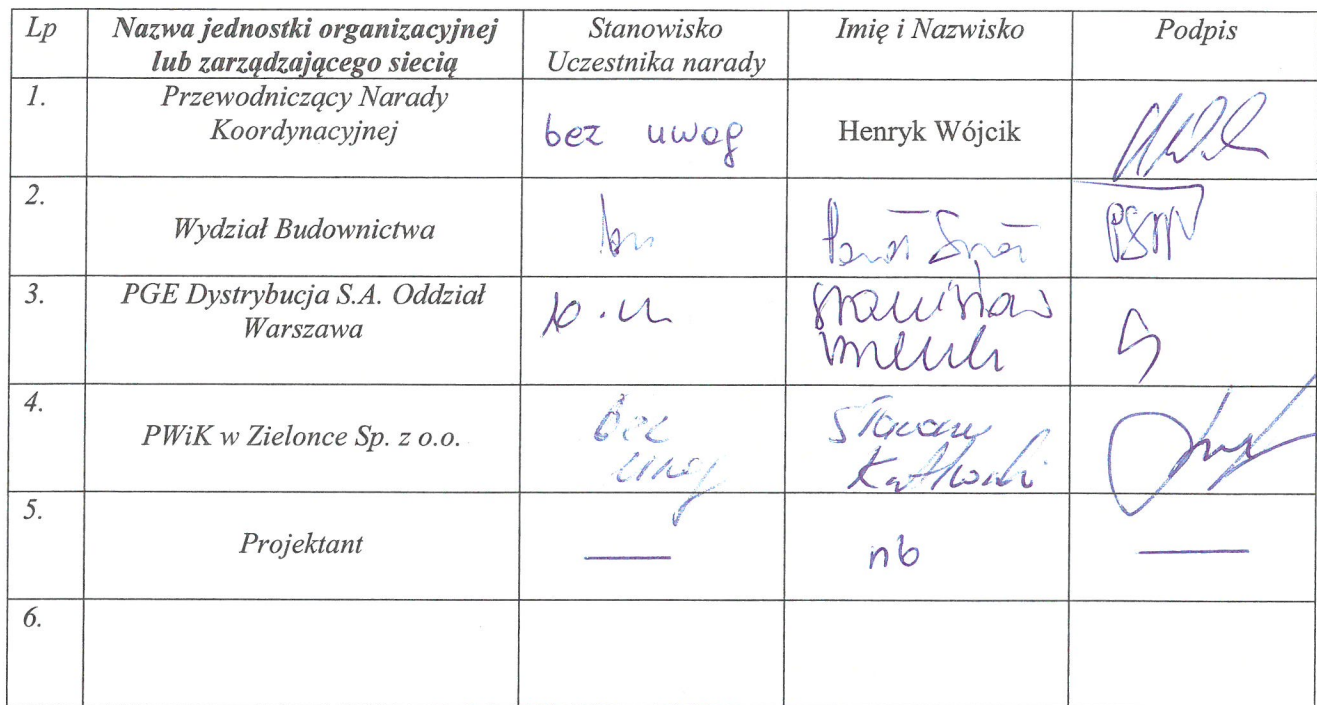 Lp Nazwa jednostki organizacyjnej lub zarządzającego siecią Stanowisko Uczestnika narady Imię i Nazwisko Podpis
1. Przewodniczący Narady Koordynacyjnej bez uwag Henryk Wójcik
2. Wydział Budownictwa
3. PGE Dystrybucja S.A. Oddział Warszawa Stanisław
4. PWiK w Zielonce Sp. z o.o. bez uwag
5. Projektant — nb —
6.